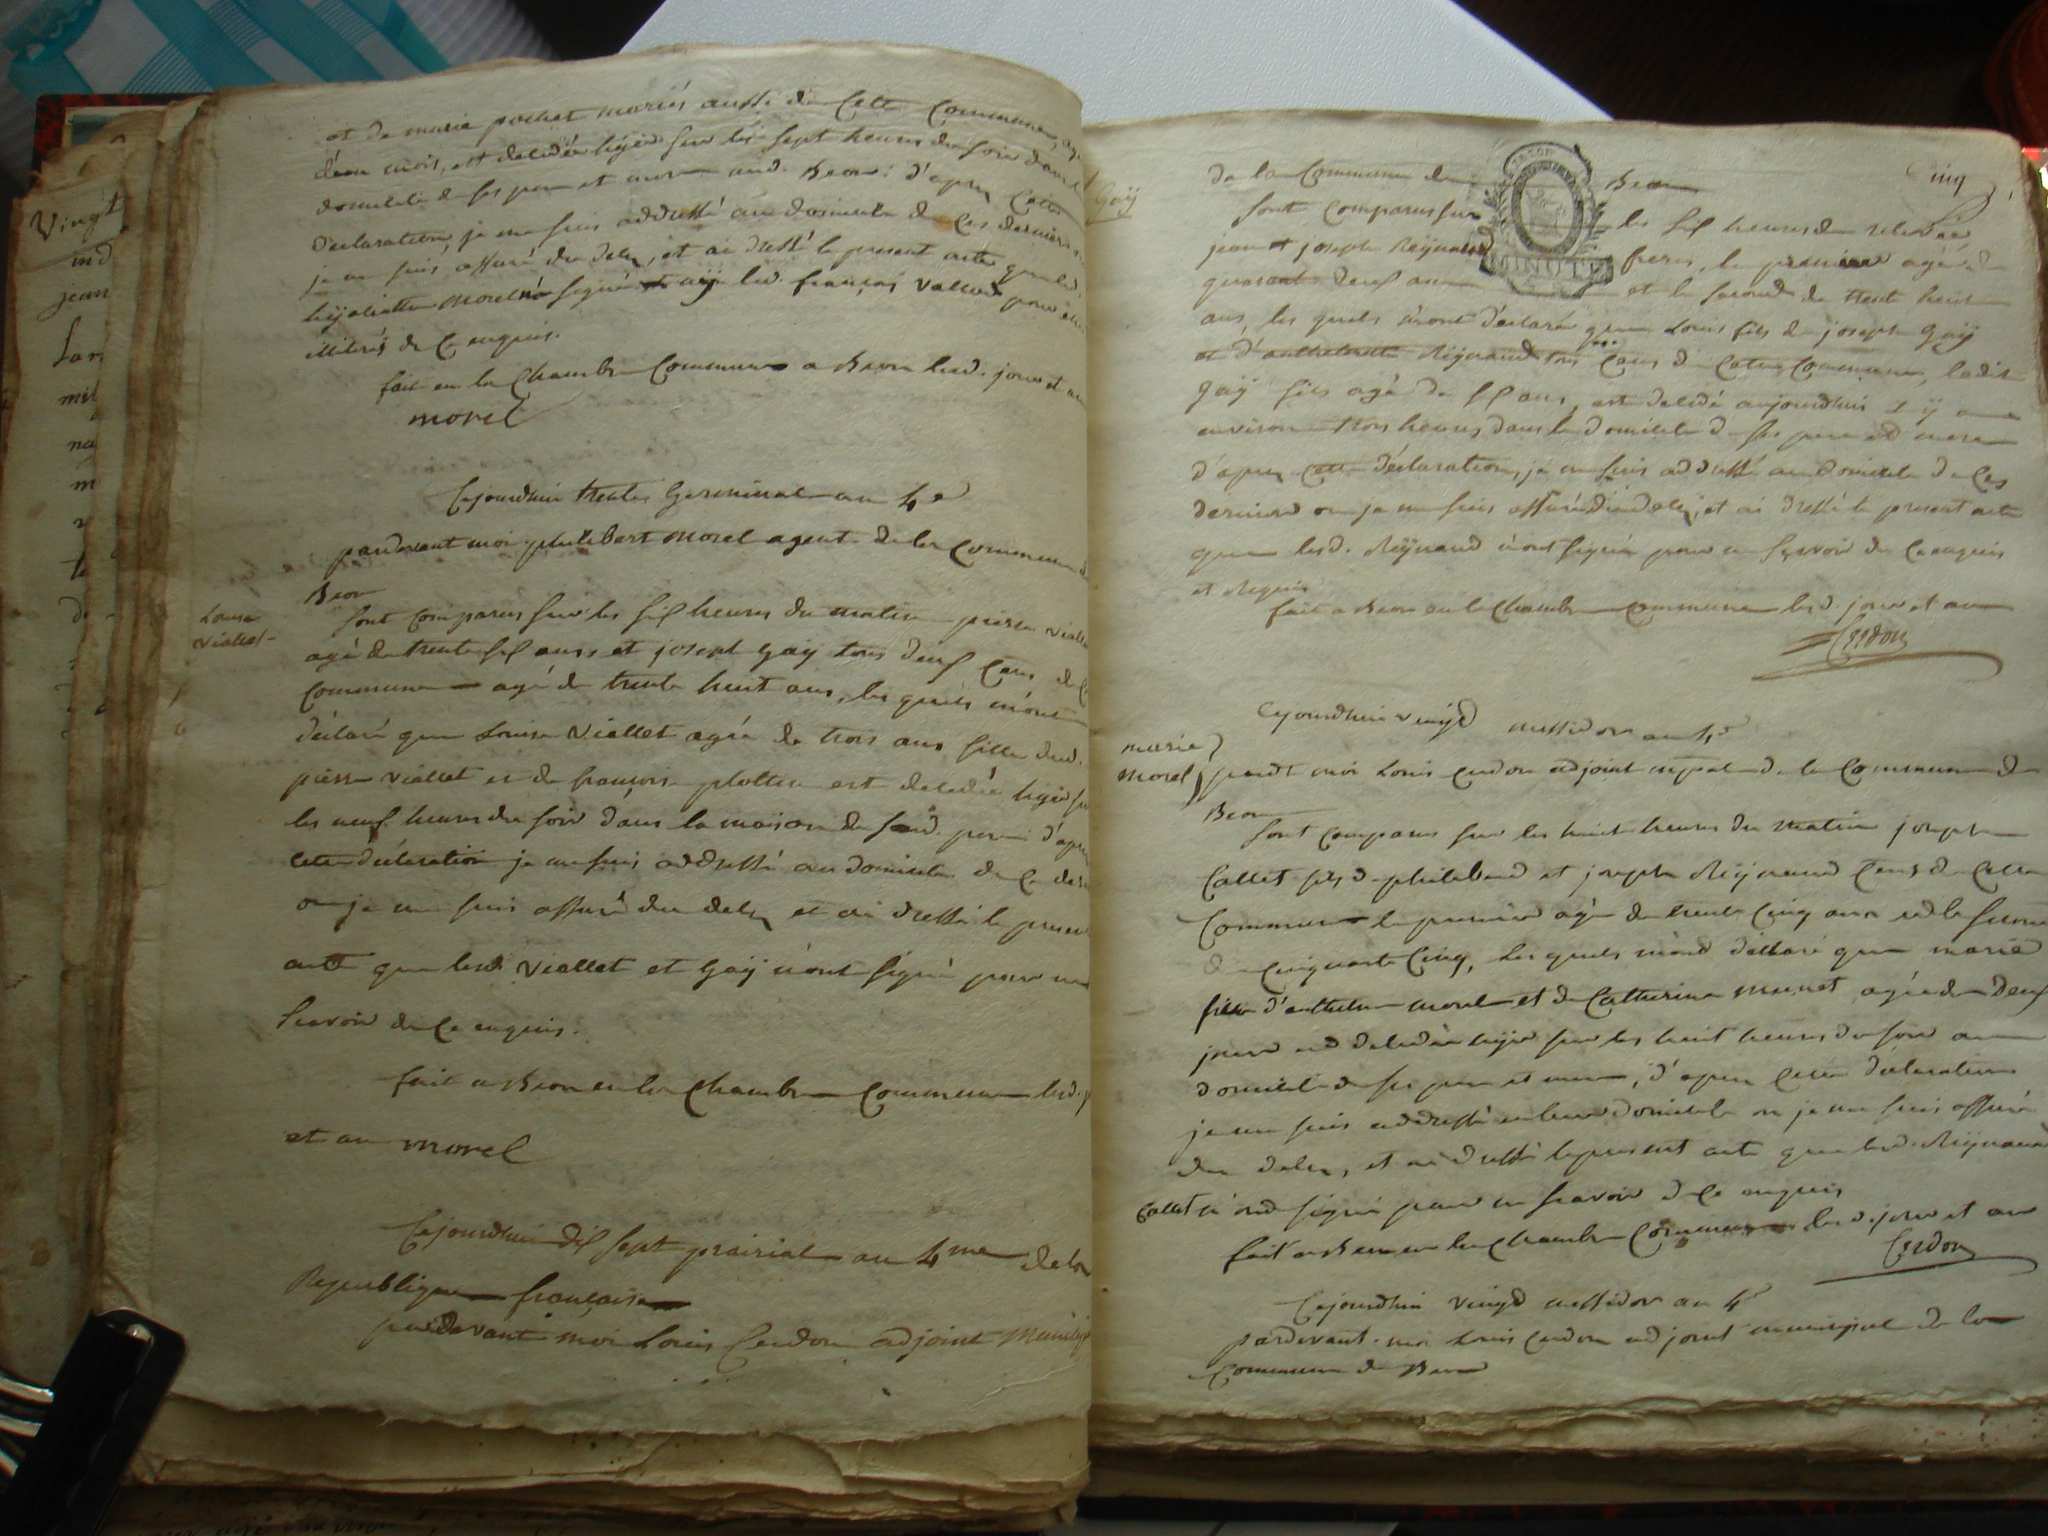 et de marie pochet mariés aussi de cette commune, agé
d'un mois, est decedée hyer sur les sept heures du soir dans le
domicile de ses pere et mere aud. Beon: d'apres cette
declaration, je me suis addressé au domicile de ces derniers
je me suis assuré du deces, et ai dressé le present acte que led.
morel n'a signé ny led. françois vallod pour etre
illiterés de ce enquis.
fait en la Chambre Commune a Beon lesd. jour et an
morel
Cejourdhui trente Germinal an 4e
pardevant moi philibert morel agent de la Commune de
Beon
Louise
viallet
sont comparus sur les six heures du matin pierre viallet
agé de trente six ans et joseph Gay tous deux Cons de Ce
Commune agé de trente huit ans, les quels m'ont
déclaré que Louise viallet agée de trois ans fille dud.
pierre viallet et de françoise est decedée hyer sur
les neuf heures du soir dans la maison de sond. pere: d'apres
cette déclaration je me suis addressé au domicile de Ce der
ou je me suis assuré du deces et ai dressé le present
acte que lesd. viallet et Gay n'ont signé pour ne
scavoir de Ce enquis.
fait a Beon en la Chambre Commune lesd. j
et an morel
Cejourdhui dix sept prairial an 4me de la
Republique française
pardevant moi Louis Cerdon adjoint Municip
Cinq
Gay
de la Commune de Beon
MINUTE
sont comparus sur les six heures de relevée
jean et joseph Reynaud freres, le premier agé de
quarante deux ans et le second de trente huit
ans, les quels m'ont déclaré que Louis fils de joseph Gay
et d'anthelmette Reynaud tous Cons de Cette Commune, ledit
Gay fils agé de six ans, est decedé aujourdhuit il y a
environ trois heures dans le domicile de ses pere et mere
d'apres cette déclaration, je me suis addressé au domicile de Ces
derniers ou je me suis assuré du deces, et ai dressé le present acte
que lesd. Reynaud n'ont signé pour ne scavoir de Ce enquis
et requis
fait a Beon en la Chambre Commune lesd. jour et an
Cerdon
Cejourdhui vingt messidor an 4e
marie
morel
pardt moi Louis Cerdon adjoint mpal de la Commune de
Beon
sont comparus sur les huit heures du matin joseph
Callet fils de philibert et joseph Reynaud Cons de Cette
Commune le premier agé de trente Cinq ans et le second
de Cinquante Cinq, les quels m'ont déclaré que marie
fille d'anthelme morel et de Catherine agée de deux
jours est decedée hyer sur les huit heures du soir au
domicile de ses pere et mere, d'apres cette déclaration
je me suis addressé en leur domicile ou je me suis assuré
du deces, et ai dressé le present acte que lesd. Reynaud
Callet n'ont signé pour ne scavoir de Ce enquis
fait a Beon en la Chambre Commune lesd. jour et an
Cerdon
Cejourdhui vingt messidor an 4e
pardevant moi Louis Cerdon adjoint municipal de la
Commune de Beon